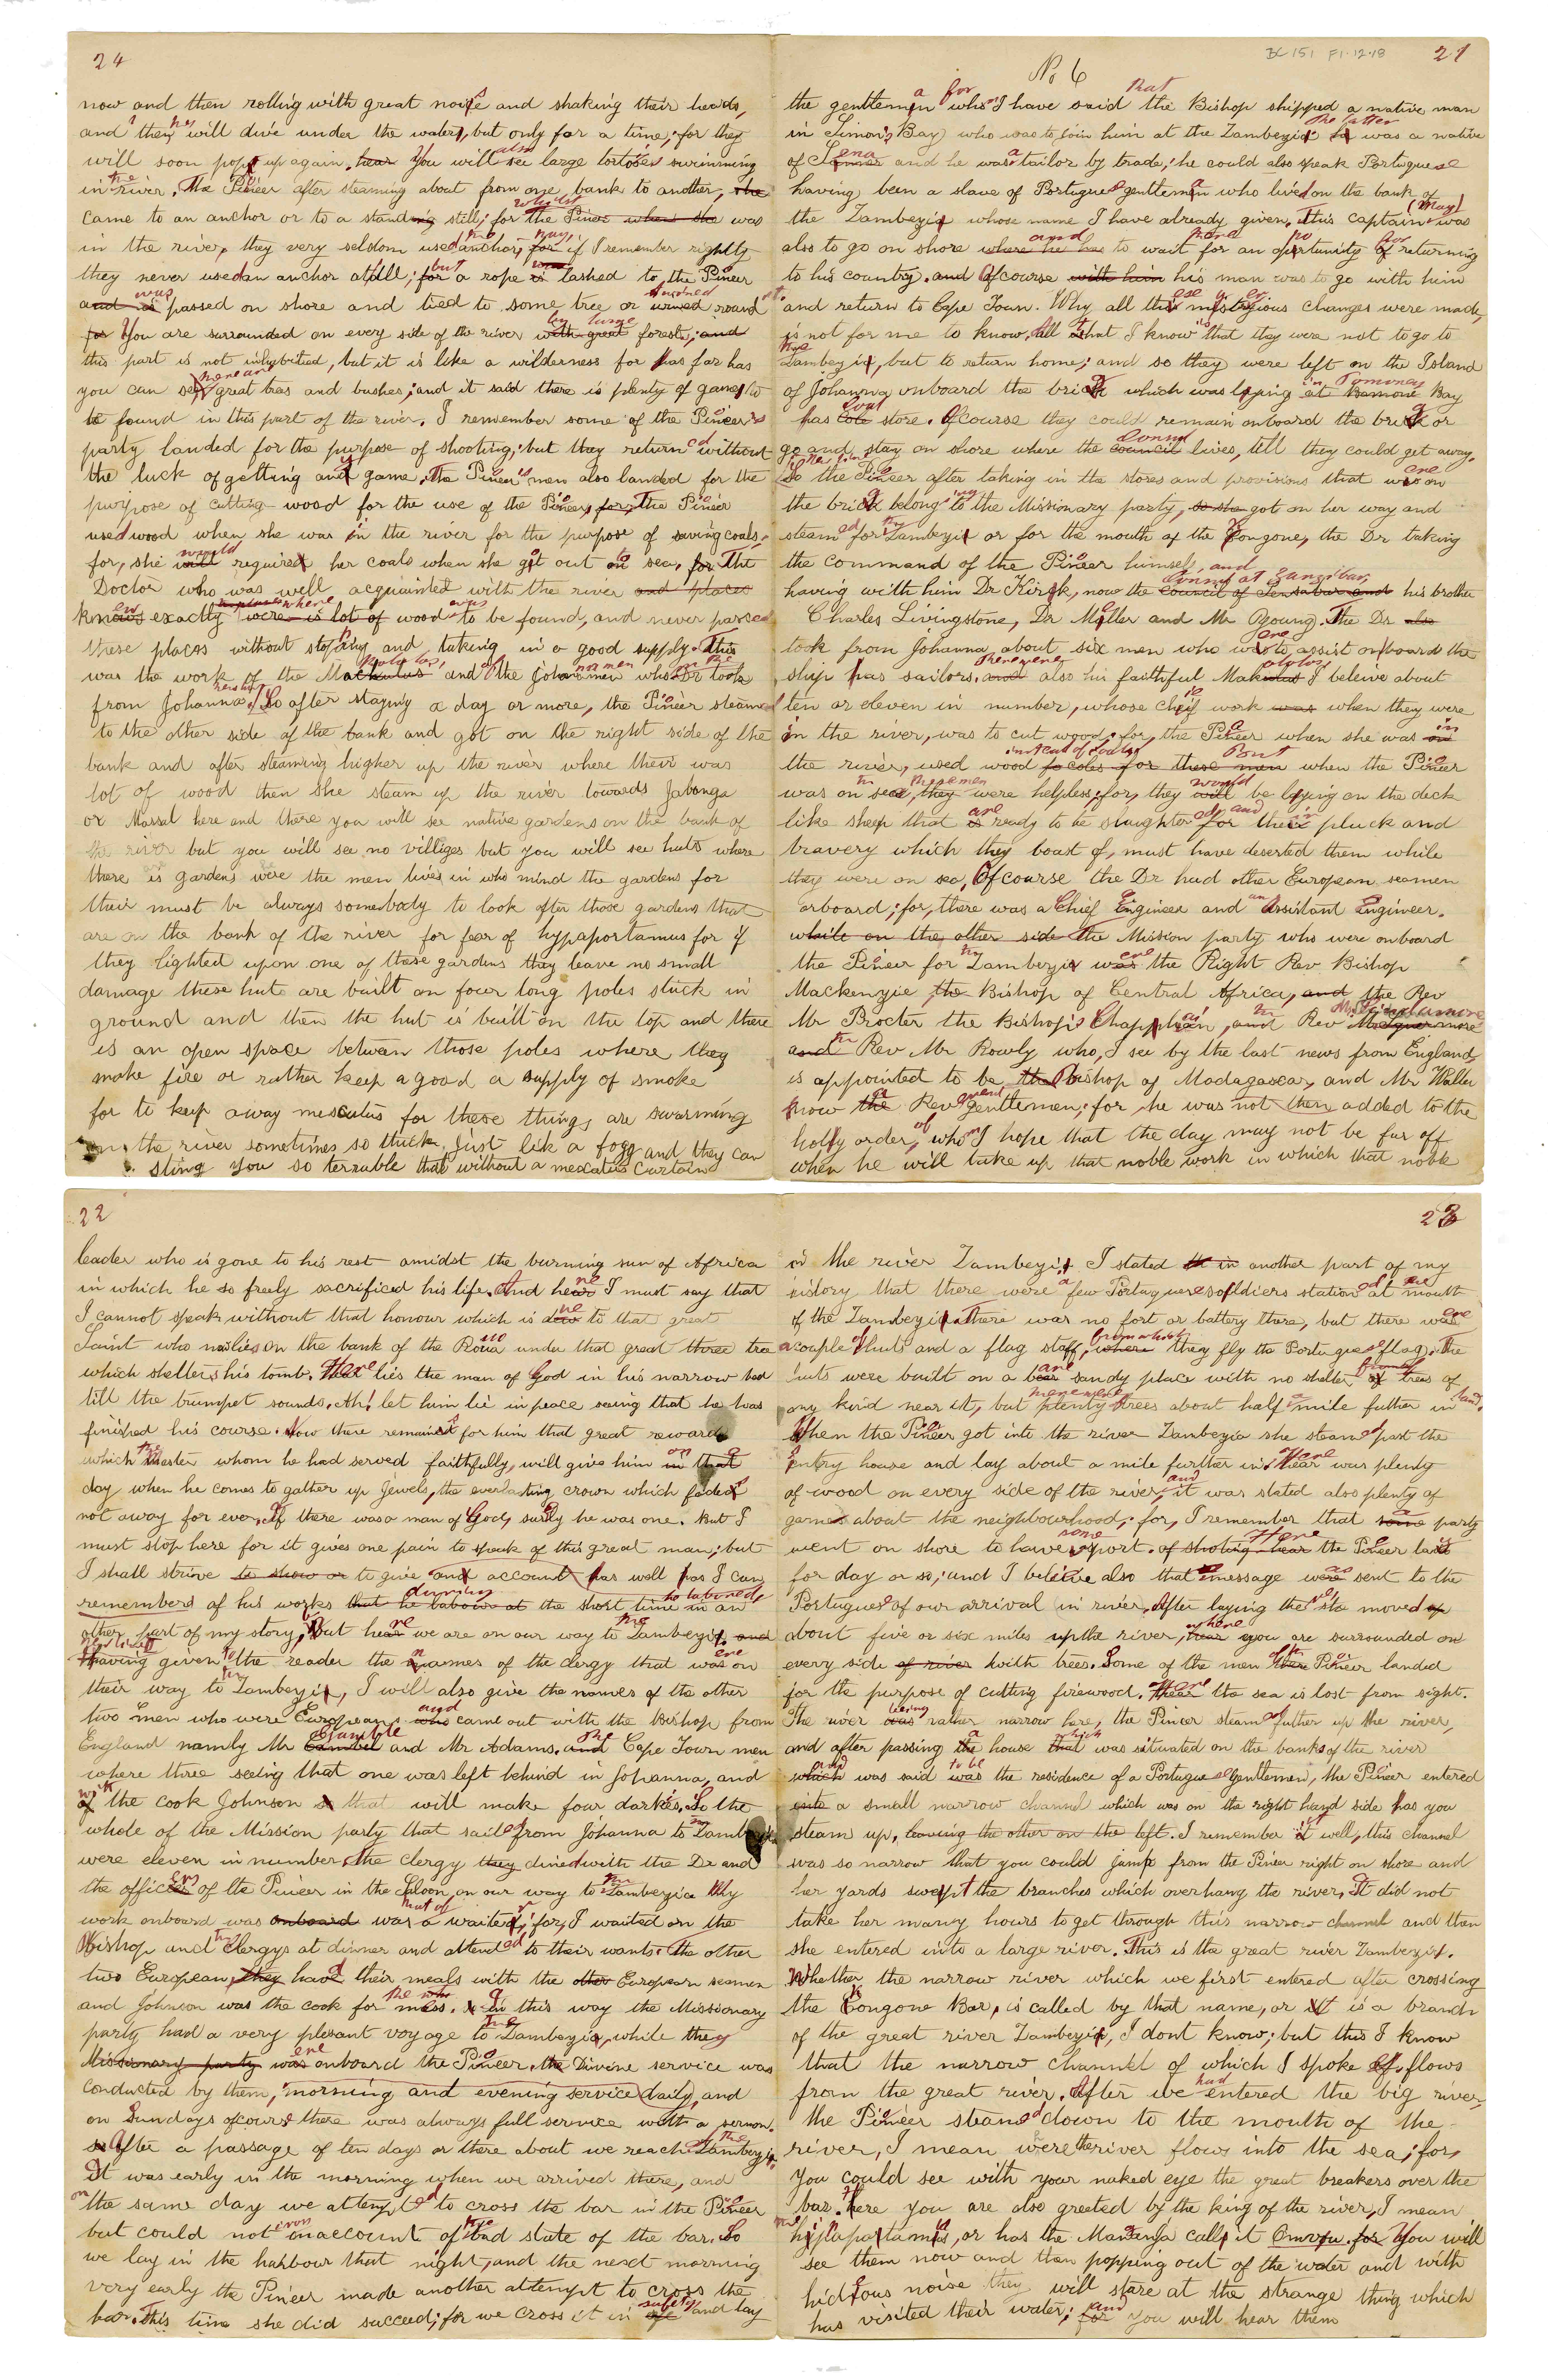 24
now and then rolling with great noise and shaking their heads,
and they will dive under the water, but only for a time, for they
will soon pop up again. hear You will also see large tortoises swimming
in the river. The Pioneer after steaming about from one bank to another, she
came to an anchor or to a standing still; for whilst the Pioneer when she was
in the river, they very seldom used the anchor, nay, for if I remember rightly
they never used an anchor at all; for but a rope is was lashed to the Pioneer
and is was passed on shore and tied to some tree or turned round it.
for You are surrounded on every side of the river with great by large forests; and
this part is not inhabited, but it is like a wilderness for as far has
you can see there are great trees and bushes; and it said there is plenty of game to
be found in this part of the river. I remember some of the Pioneer's
party landed for the purpose of shooting; but they returned without
the luck of getting any game. The Pioneer's men also landed for the
purpose of cutting wood for the use of the Pioneer, for, The Pioneer
used wood when she was in the river for the purpose of saving coals,
for, she will would required her coals when she got out on to sea, for The
Doctor who was well acquainted with the river and places
knows knew exactly the places where were is lot of wood was to be found, and never passed
these places without stopping and taking in a good supply. This
was the work of the Makololos, and of the Johanna men who the Dr took
from Johanna. So after staying a day or more, the Pioneer steamed
to the other side of the bank and got on the right side of the
bank and after steaming higher up the river where their was
lot of wood then she steam up the river towards Jabonga
or Massal here and there you will see native gardens on the bank of
the river but you will see no villiges but you will see huts where
there is gardens were the men lives in who mind the gardens for
their must be always somebody to look after those gardens that
are on the bank of the river for fear of hypaportamus for if
they lighted upon one of these gardens they leave no small
damage these huts are built on four long poles stuck in
ground and then the hut is built on the top and there
is an open space between those poles where they
make fire or rather keep a good a supply of smoke
for to keep away mescutus for these things are swarming
on the river sometimes so thick just lik a fogg and they can
sting you so terrable that without a mescatus curtain
BC 151 F1-12-18
21
No 6
the gentleman for who I have said that the Bishop shipped a native man
in Simon's Bay who was to join him at the Zambezi the latter was a native
of Sena and he was a tailor by trade, he could also speak Portuguese
having been a slave of Portuguese gentleman who lived on the bank of
the Zambezi whose name I have already given, this captain (May) was
also to go on shore where he has and to wait there for an opportunity for of returning
to his country. and Of course with him his man was to go with him
and return to Cape Town. Why all these mysterious changes were made,
is not for me to know, all that I know is that they were not to go to
the Zambezi, but to return home; and so they were left on the Island
of Johanna onboard the brick which was lying at in Pomoney Bay
has coal store. Of course they could remain onboard the brig or
go and stay on shore where the council Consul lives, till they could get away.
So the Pioneer after taking in the stores and provisions that were on
the brig belonging to the Missionary party, so she got on her way and
steamed for the Zambezi or for the mouth of the Kongone, the Dr taking
the command of the Pioneer himself, and
having with him Dr Kirk, now the Council of Sensabar and Consul at Zanzibar, his brother
Charles Livingstone, Dr Meller and Mr Young. The Dr also
took from Johanna about six men who were to assist onboard the
ship has sailors. and there were also his faithful Makololos I beleive about
ten or eleven in number, whose chief work was when they were
in the river, was to cut wood, for, the Pioneer when she was on in
the river, used wood instead of coals for these men But when the Pioneer
was on the sea, they these men were helpless, for, they will would be lying on the deck
like sheep that is are ready to be slaughtered, for and their pluck and
bravery which they boast of, must have deserted them while
they were on sea, Of course the Dr had other European seamen
onboard; for, there was a Chief Engineer and an Assistant Engineer.
while on the other side the Mission party who were onboard
the Pioneer for the Zambezi were the Right Rev Bishop
Mackenzie the Bishop of Central Africa, and the Rev
Mr Procter the Bishop's Chaplain, and the Rev Mr Scudamore
and the Rev Mr Rowly who, I see by the last news from England,
is appointed to be the Bishop of Madagascar, and Mr Waller
now the a Rev gentleman; for, he was not then added to the
holy order, of who I hope that the day may not be far off
when he will take up that noble work in which that noble
22
leader who is gone to his rest amidst the burning sun of Africa
in which he so freely sacrificed his life. And hear here I must say that
I cannot speak without that honour which is due to that great
Saint who now lies on the bank of the Roua under that great three tree
which shelters his tomb. There lies the man of God in his narrow bed
till the trumpet sounds. Ah! let him lie in peace seeing that he has
finished his course. Now there remaineth for him that great reward
which the Master whom he had served faithfully, will give him in that on a
day when he comes to gather up Jewels, the everlasting crown which fadeth
not away for ever. If there was a man of God, surely he was one. But I
must stop here for it gives one pain to speak of this great man; but
I shall strive to show or to give an account as well as I can
remember of his works that he labour at during the short time he laboured, in an
other part of my story. But hear here we are on our way to the Zambezi. and
Having given to the reader the names of the clergy that was were on
their way to the Zambezi, I will also give the names of the other
two men who were Europeans who and came out with the Bishop from
England namly Mr Gamble and Mr Adams. and The Cape Town men
where three seeing that one was left behind in Johanna, and
of with the cook Johnson that will make four darkies. So the
whole of the Mission party that sailed from Johanna to the Zambezi
were eleven in number, the clergy they dined with the Dr and
the officers of the Pioneer in the Saloon, on our way to the Zambezia My
work onboard was onboard was that of a waiter; for, I waited on the
Bishop and the Clergys at dinner and attended to their wants. The other
two European, they had their meals with the other European seamen
and Johnson was the cook for the mess. In this way the Missionary
party had a very plesant voyage to the Zambezi, while they
Missionary party was were onboard the Pioneer, the Divine service was
conducted by them, morning and evening service daily, and
on Sundays of course there was always full service with a sermon.
so After a passage of ten days or there about we reach the Zambezi.
It was early in the morning when we arrived there, and
on the same day we attempted to cross the bar in the Pioneer
but could not even on account of the bad state of the bar. So
we lay in the harbour that night, and the next morning
very early the Pioneer made another attempt to cross the
bar. This time she did succeed; for we cross it in safety and lay
23
in the river Zambezi. I stated in another part of my
history that there were a few Portuguese soldiers stationed at the mouth
of the Zambezi. There was no fort or battery there, but there was were
a couple of huts and a flag staff, where from which they fly the Portuguese flag. The
huts were built on a bear bare sandy place with no shelter of trees of
any kind near it, but plenty there were trees about half a mile futher in land.
When the Pioneer got into the river Zambezia she steamed past the
Entry house and lay about a mile further in. Here was plenty
of wood on every side of the river, and it was stated also plenty of
game about the neighbourhood; for, I remember that some a party
went on shore to have some sport. of shoting hear Here the Pioneer laid
for day or so; and I beleive also that message were was sent to the
Portuguese of our arrival in river. After laying there she moved up
about five or six miles up the river, hear where you are surrounded on
every side of river with trees. Some of the men of the Pioneer landed
for the purpose of cutting firewood. Here the sea is lost from sight.
The river was being rather narrow here, the Pioneer steamed futher up the river,
and after passing the a house that which was situated on the banks of the river
which and was said was to be the residence of a Portuguese Gentleman, the Pioneer entered
into a small narrow channel which was on the right hand side has you
steam up, leaving the other on the left. I remember it well, this channel
was so narrow that you could jump from the Pioneer right on shore and
her yards swept the branches which overhang the river, It did not
take her many hours to get through this narrow channel and then
she entered into a large river. This is the great river Zambezi.
Whether the narrow river which we first entered after crossing
the Kongone Bar, is called by that name, or it is a branch
of the great river Zambezi, I dont know; but this I know
that the narrow channel of which I spoke of, flows
from the great river. After we had entered the big river,
the Pioneer steamed down to the mouth of the
river, I mean where the river flows into the sea; for,
you could see with your naked eye the great breakers over the
bar. Here you are also greeted by the king of the river, I mean
the hippapotamis, or has the Mananja call it Omvyu. for You will
see them now and then popping out of the water and with
hideous noise they will stare at the strange thing which
has visited their water; for and you will hear them